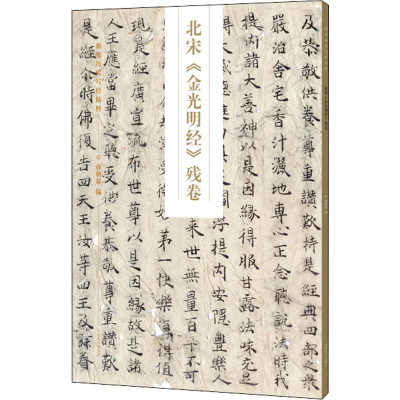 北宋《金光明经》残卷
及恭敬供養尊重讚歎持是經典四部之衆
嚴治舍宅香汁灑地專心正念聽說法時我
提内諸大善神以是因緣得服甘露法味充
浮提内安隱豐樂人
來世無量百千不可
第一快樂得值
現是經廣宣流布世尊以是因緣故是諸
人王應當畢定聽受供養恭敬尊重讚歎
是經尒時佛復告四天王汝等四王及餘眷